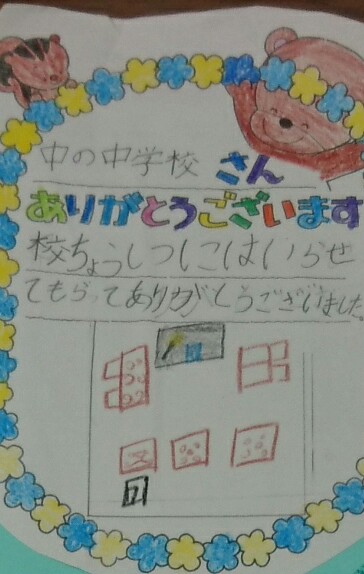 中の中学校 さん
ありがとうございます
校ちょうしつにはいらせ
てもらってありがとうございました。